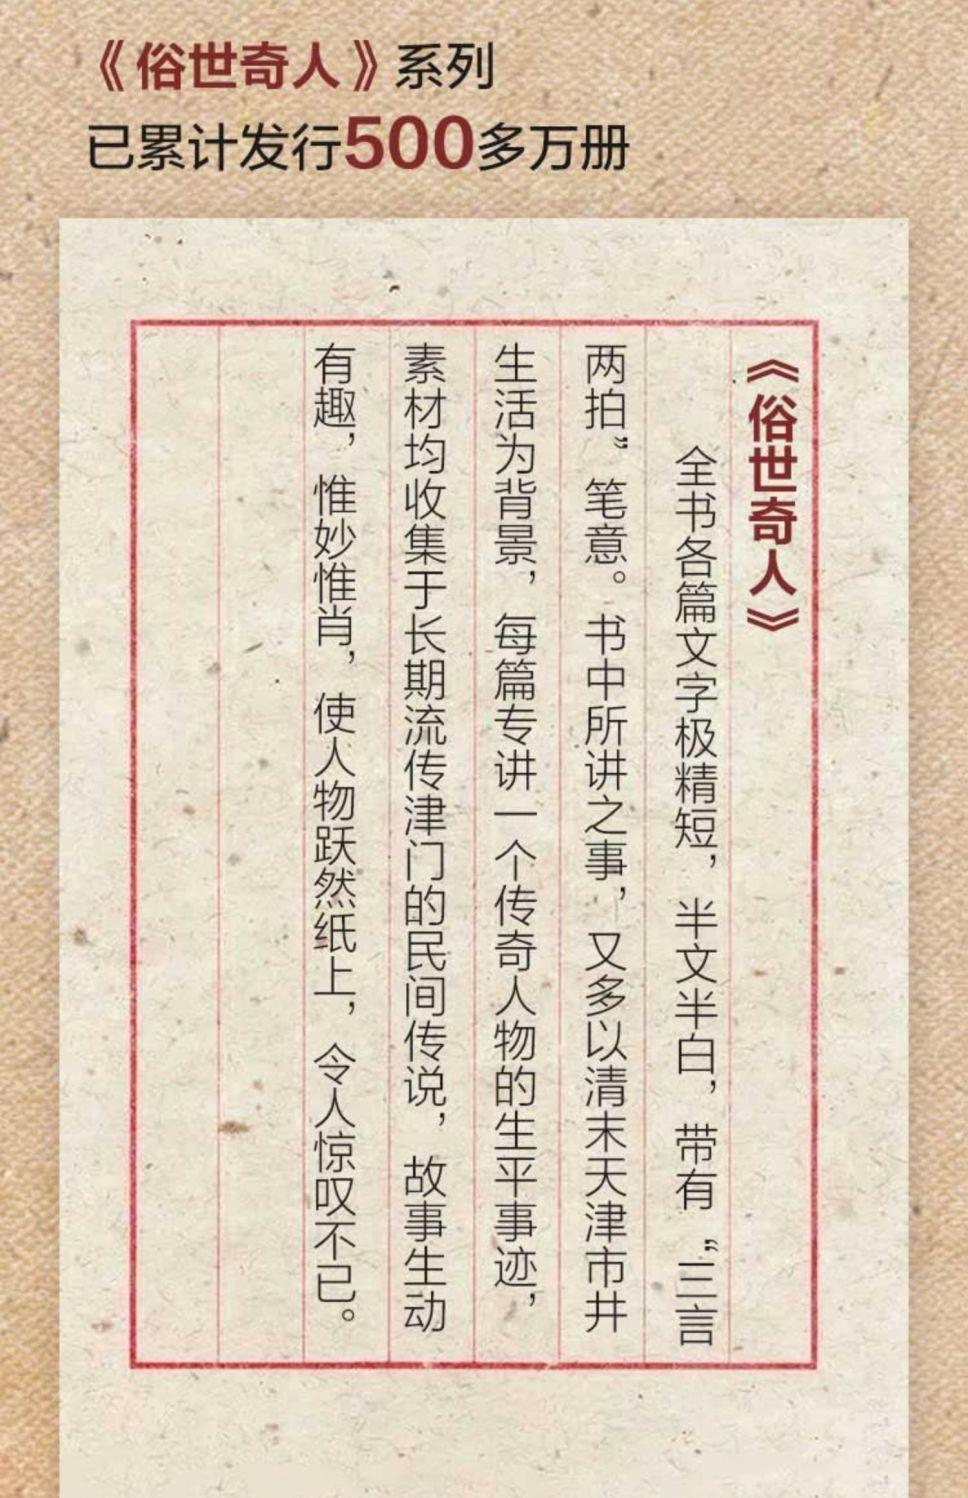 《俗世奇人》系列
已累计发行500多万册
《俗世奇人》
全书各篇文字极精短，半文半白，带有“三言
两拍”笔意。书中所讲之事，又多以清末天津市井
生活为背景，每篇专讲一个传奇人物的生平事迹，
素材均收集于长期流传津门的民间传说，故事生动
有趣，惟妙惟肖，使人物跃然纸上，令人惊叹不已。